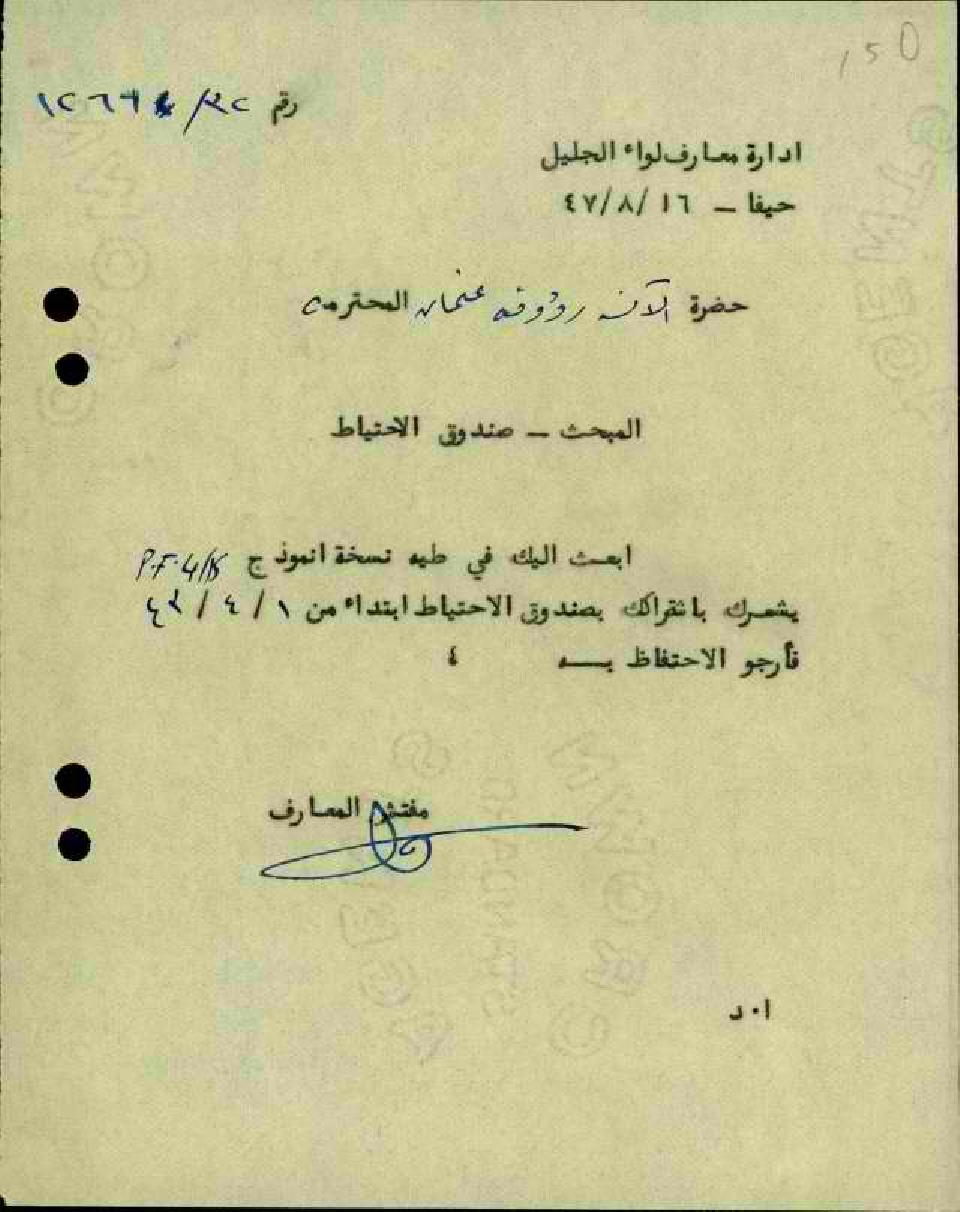 150
رقم
ادارة معارف لواء الجليل
حيفا – ١٦ /٤٧/٨
حضرة الآنسه رؤوفه عثمان المحترمه
المبحث – صندوق الاحتياط
ابعث اليك في طيه نسخة انموذج P.F. 4/
يشعرك باشتراكك بصندوق الاحتياط ابتداء من ١ / ٤ /
فأرجو الاحتفاظ بــه ٤
مفتش المعارف
ا٠ د